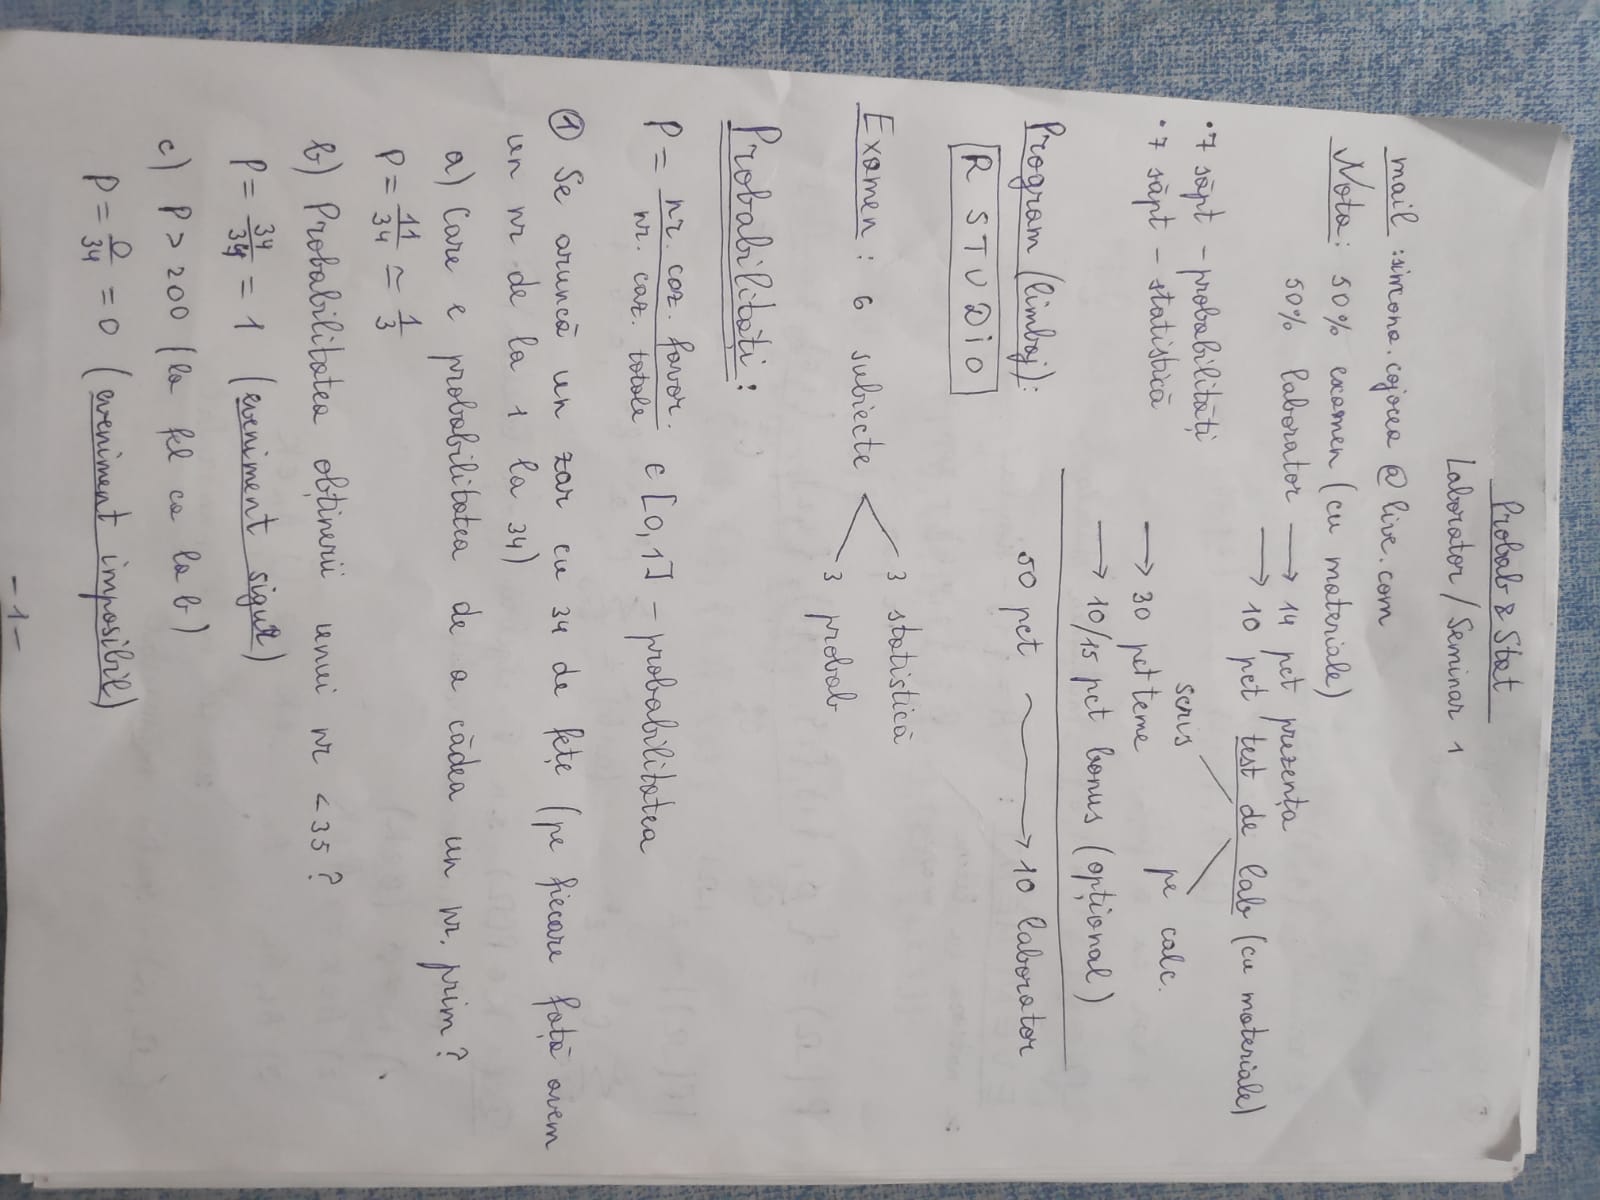 Probab & Stat
Laborator / Seminar 1
mail : simona.cojocea @ live.com
Nota: 50% examen (cu materiale)
50% laborator → 14 pct prezența
→ 10 pct test de lab (cu materiale)
scris pe calc.
→ 30 pct teme
→ 10/15 pct bonus (opțional)
50 pct → 10 laborator
• 7 săpt – probabilități
• 7 săpt – statistică
Program (limbaj):
R STUDiO
Examen : 6 subiecte < 3 statistică
3 probab
Probabilități:
P = nr. caz. favor. / nr. caz. totale ∈ [0,1] – probabilitatea
① Se aruncă un zar cu 34 de fețe (pe fiecare față avem
un nr de la 1 la 34)
a) Care e probabilitatea de a cădea un nr. prim?
P = 11/34 ≃ 1/3
b) Probabilitatea obținerii unui nr < 35?
P = 34/34 = 1 (eveniment sigur)
c) P > 200 (la fel ca la b)
P = 0/34 = 0 (eveniment imposibil)
- 1 -